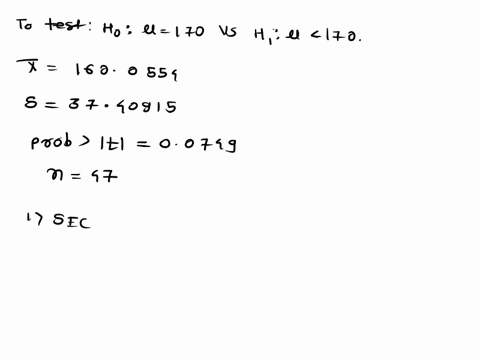 To test: H₀: μ = 170 Vs H₁: μ < 170.
x̄ = 160.0554
S = 37.40815
prob > |t| = 0.0749
n = 47
1) SEC